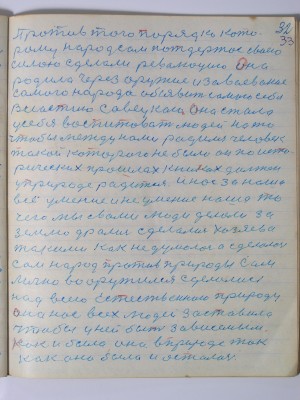 32
33
Против того порядка кото-
рому народ сам потдержое свою
силою сделали революцию. Она
родила через оружие и завоевание
самого народа объявить самую себя
властию Советскою, она стала
у себя воспитовать людей на то
чтобы между нами родился человек
такой которого не было он по исто-
рических прошлых книгах должен
в природе родится. И нас за наше
всё умение и не умение наша то
чего мы с вами люди деньги за
землю дрались сделали хозяева
такими как не думалося сделалося
сам народ против природы сам
лично вооружился сделалися
над всею Естественною природу
она нас всех людей заставила
чтобы у ней быть зависимым.
Как и было она в природе так
как она была и осталася